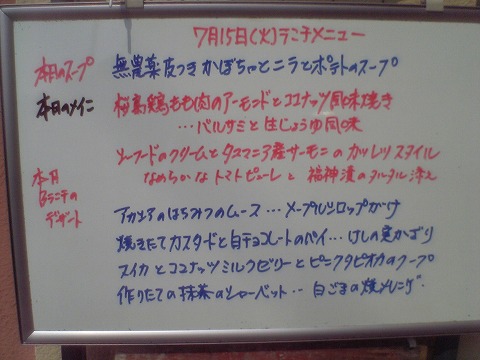 7月15日(火)ランチメニュー
本日のスープ 無農薬皮つきかぼちゃとニラとポテトのスープ
本日のメイン 桜島鶏もも肉のアーモンドとココナッツ風味焼き
…バルサミと生じょうゆ風味
シーフードのクリームとタスマニア産サーモンのカツレツスタイル
なめらかなトマトピューレと福神漬のタルタル添え
本日
Bランチの
デザート
アカシアのはちみつのムース…メープルシロップがけ
焼きたてカスタードと白チョコレートのパイ…けしの実かざり
スイカとココナッツミルクゼリーとピンクタピオカのスープ
作りたての抹茶のシャーベット…白ごまの焼メレンゲ